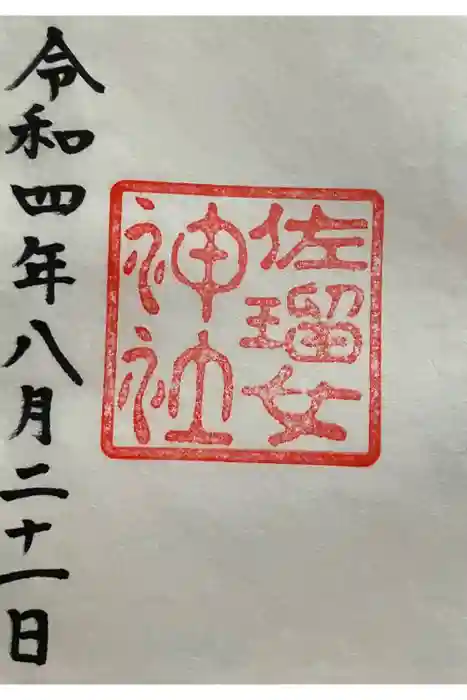 佐瑠女
神社
令和四年八月二十一日